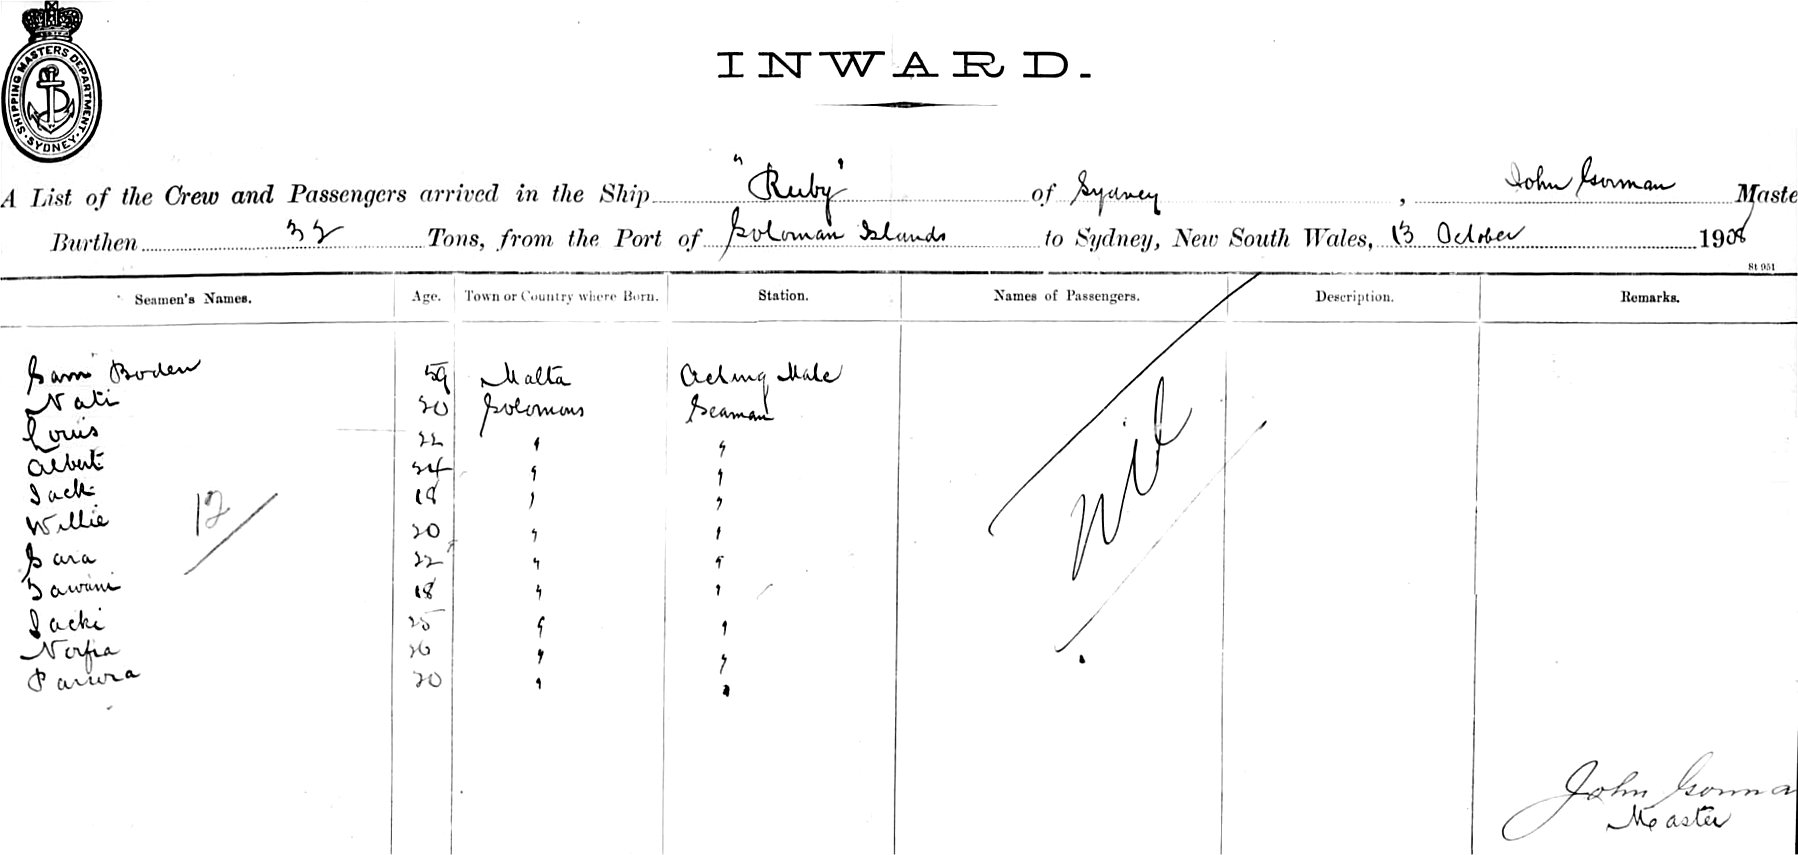 SHIPPING MASTERS DEPARTMENT. SYDNEY
INWARD.
A List of the Crew and Passengers arrived in the Ship "Ruby" of Sydney, John Gorman Maste
Burthen Tons, from the Port of Soloman Islands to Sydney, New South Wales, 13 October 1908
St 951
Seamen's Names. Age. Town or Country where Born. Station. Names of Passengers. Description. Remarks.
Sam Boden 59 Malta Acting Mate
Nati 20 Solomons Seaman
Louis 22 " "
Albert 24 " "
Jack 18 " "
Willie 20 " "
Sara 22 " "
18 " "
Jacki 25 " "
Norfia " "
20 " "
12
nil
John Gorma
Master